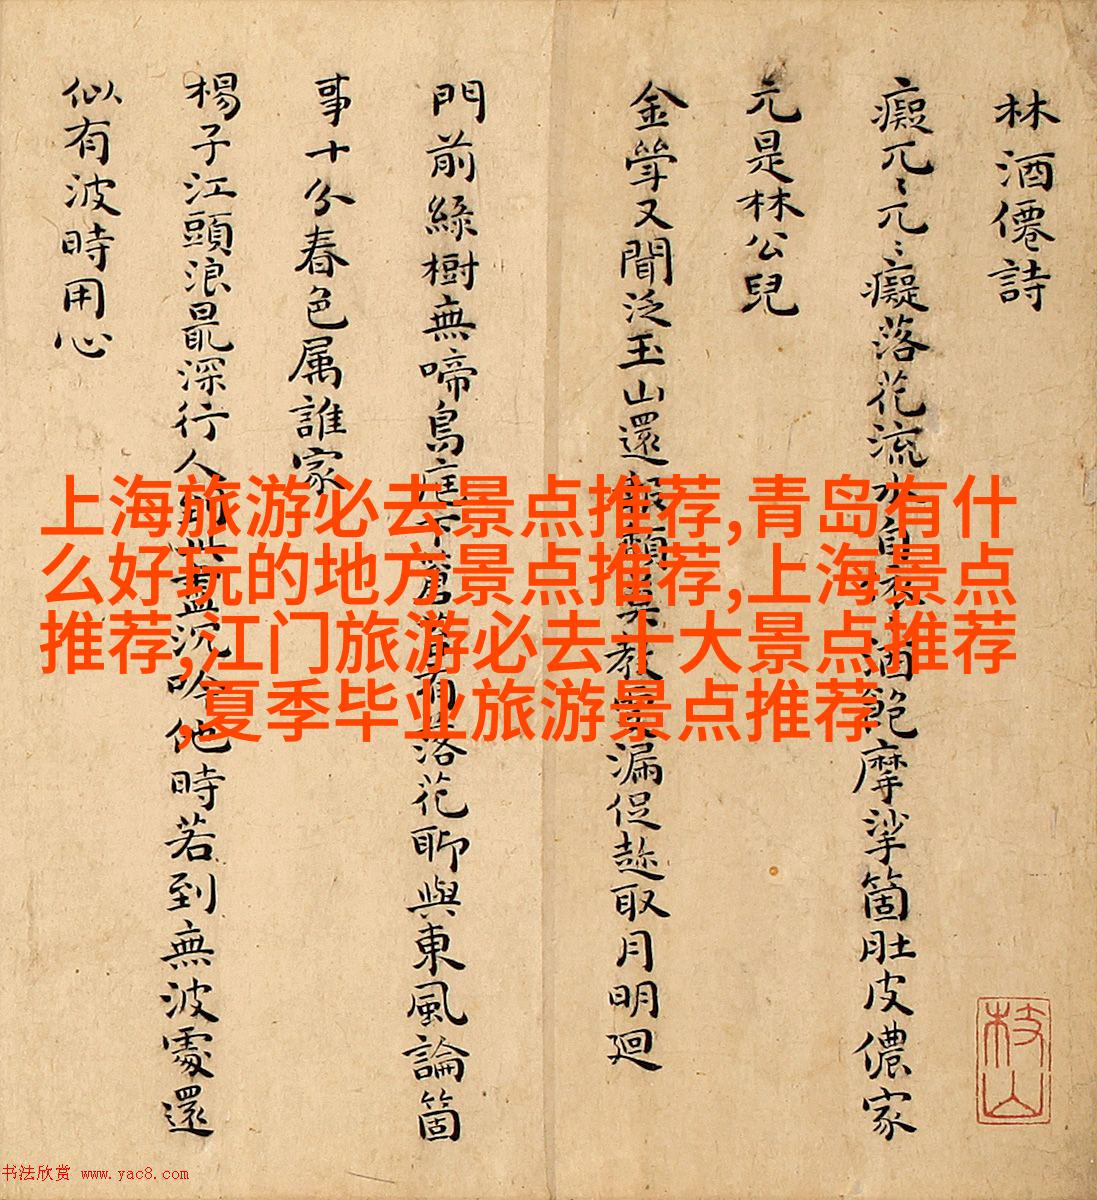 林酒僊詩
癡兀〻兀〻癡落花流水自
酒飽摩挲箇肚皮儂家
元是林公兒
金斝又聞泛玉山還報頹莫教
漏促趂取月明廻
門前綠樹無啼鳥庭下蒼
落花聊與東風論箇
事十分春色属誰家
楊子江頭浪最深行人
沉吟他時若到無波處還
似有波時用心
枝山
上海旅游必去景点推荐,青岛有什
么好玩的地方景点推荐,上海景点
推荐,江门旅游必去十大景点推荐
,夏季毕业旅游景点推荐
书法欣赏 www.yac8.com